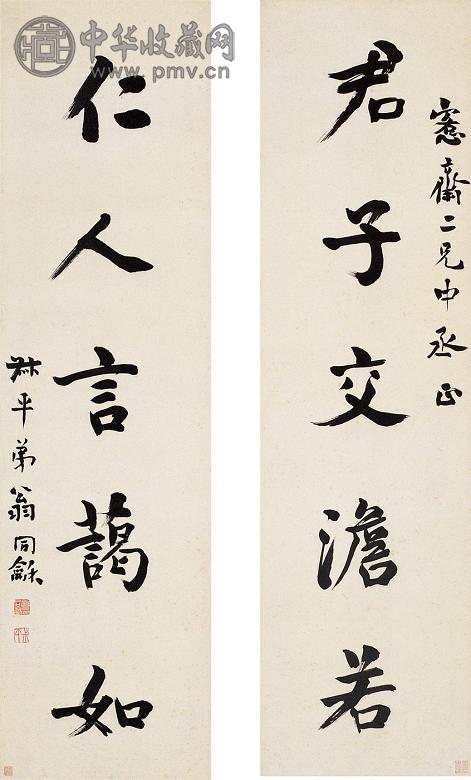 中华收藏网
www.pmv.cn
愙齋二兄中丞正
君子交澹若
仁人言藹如
尗平弟翁同龢